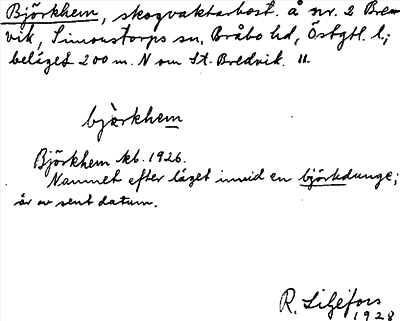 Björkhem, skogvaktarbost. å nr. 2 Bre-
vik, Simonstorps sn, Bråbo hd, Östgtl. l;
beläget 200 m. N om St. Bredvik. 11.
bjò̤rkhem
Björkhem kb. 1926.
Namnet efter läget invid en björkdunge;
är av sent datum.
R. Liljefors
1928